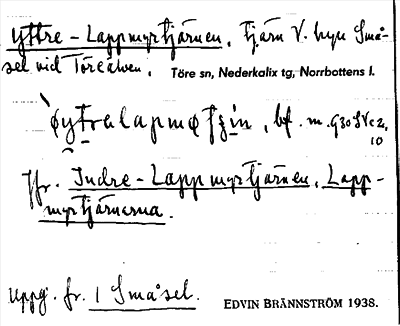 Yttre-Lappmyrtjärnen, tjärn V. byn Små-
sel vid Töreälven. Töre sn, Nederkalix tg, Norrbottens l.
bf. m.
10
Jfr. Indre-Lappmyrtjärnen, Lapp-
myrtjärnarna.
Uppg. fr. i Småsel. EDVIN BRÄNNSTRÖM 1938.